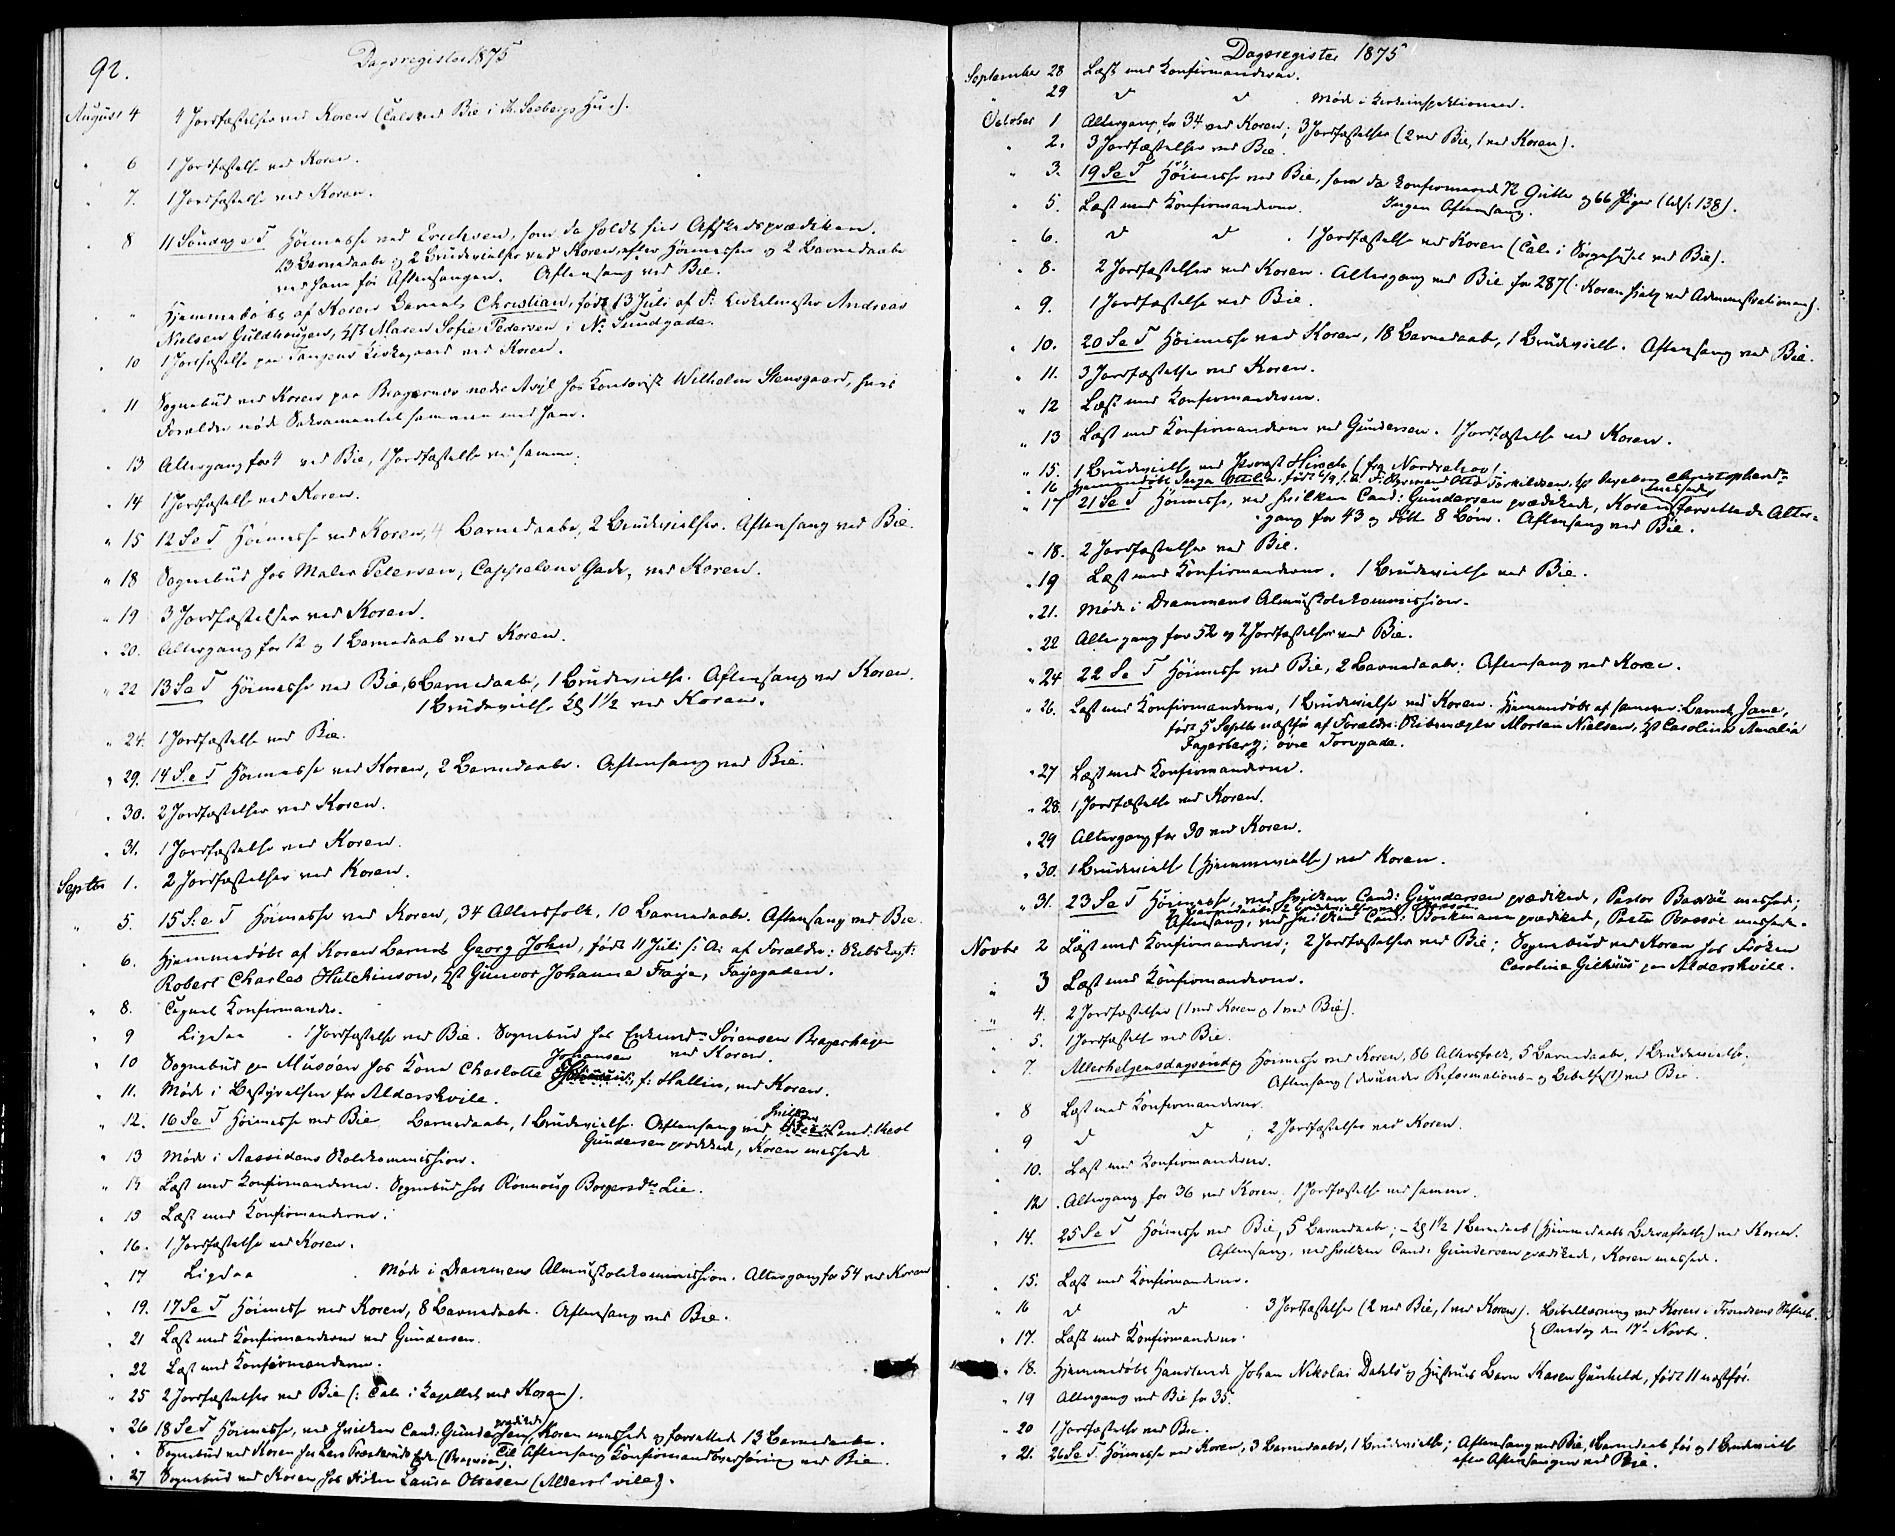 92.
Dagsregister 1875
August 4 4 Jordfæstelser ved Koren (Tale ved Bie i Hus).
" 6 1 Jordfæstelse ved Koren.
" 7. 1 Jordfæstelse ved Koren.
" 8 11 Søndag e T Høimesse ved Erichsen, som da holdt sin Afskedsprædiken.
13 Barnedaab og 2 Brudevielser ved Koren efter Høimessen og 2 Barnedaabe
ved ham før Aftensangen. Aftensang ved Bie.
" Hjemmedøbt af Koren Barnet Christian, født 13 Juli af F: Andreas
Nielsen Guldhaugen, Hst Maren Sofie Pedersen i N. Sundgade.
" 10 1 Jordfæstelse paa Tangens Kirkegaard ved Koren.
" 11 Sognebud ved Koren paa Bragernæs nedre Asyl hos Kontorist Wilhelm Stensgaard, hvis
Forældre nød Sakramentet sammen med ham.
" 13 Altergang for 4 ved Bie, 1 Jordfæstelse ved samme.
" 14 1 Jordfæstelse ved Koren.
" 15 12 S e T Høimesse ved Koren, 4 Barnedaabe, 2 Brudevielser. Aftensang ved Bie.
" 18 Sognebud hos Maler Petersen, Cappelens Gade, ved Koren.
" 19 3 Jordfæstelser ved Koren.
" 20. Altergang for 12 og 1 Barnedaab ved Koren.
" 22 13 S e T Høimesse ved Bie, 6 Barnedaabe, 1 Brudevielse. Aftensang ved Koren.
1 Brudevielse Kl 1½ ved Koren.
" 24. 1 Jordfæstelse ved Bie.
" 29. 14 S. e T Høimesse ved Koren, 2 Barnedaabe. Aftensang ved Bie.
" 30. 2 Jordfæstelser ved Koren.
" 31. 1 Jordfæstelse ved Koren.
Septbr 1. 2 Jordfæstelser ved Koren.
" 5. 15 S: e T Høimesse ved Koren, 34 Altersfolk, 10 Barnedaabe. Aftensang ved Bie.
" 6. Hjemmedøbt af Koren Barnet Georg John, født 11 Juli s: A: af Forældre: Skibskapt:
Robert Charles Hutchinson, Hst Gunvor Johanne Faye, Fayegaden.
" 8. Tegnet Konfirmander.
" 9 Ligedaa. 1 Jordfæstelse ved Bie. Sognebud hos Sørensen Bragerhagen
ved Koren.
" 10 Sognebud paa Musøen hos Kone Charlotte Johansen f: Hallin, ved Koren.
" 11. Møde i Bestyrelsen for Aldershvile.
" 12. 16 S e T Høimesse ved Bie Barnedaabe, 1 Brudevielse. Aftensang ved hvilken Cand: theol
Gundersen prædikede, Koren messede
" 13 Møde i Aassidens Skolekommission.
" 14 Læst med Konfirmanderne. Sognebud hos Rønnoug Borgersdtr Lie.
" 15 Læst med Konfirmanderne.
" 16. 1 Jordfæstelse ved Koren.
" 17 Ligedaa. Møde i Drammens Almueskolekommission. Altergang for 54 ved Koren
" 19. 17 S e T Høimesse ved Koren, 8 Barnedaabe. Aftensang ved Bie.
" 21 Læst med Konfirmanderne ved Gundersen.
" 22 Læst med Konfirmanderne.
" 25 2 Jordfæstelser ved Bie (: Tale i Kapellet ved Koren).
" 26 18 S e T Høimesse, ved hvilken Cand: Gundersen prædikede, Koren messede og forrettede 13 Barnedaabe.
" Sognebud ved Koren hos Lars (Bragerøen). Til Aftensang Konfirmandoverhøring ved Bie.
" 27 Sognebud ved Koren hos Frøken Laura Ottesen (Aldershvile).
Dagsregister 1875
September 28 Læst med Konfirmanderne.
" 29 d d. Møde i Kirkeinspektionen.
October 1 Altergang for 34 ved Koren; 3 Jordfæstelser (2 ved Bie, 1 ved Koren).
" 2. 3 Jordfæstelser ved Bie.
" 3. 19 S e T Høimesse ved Bie, som da konfirmerede 72 Gutter og 66 Piger (tils: 138).
Ingen Aftensang.
" 5. Læst med Konfirmanderne.
" 6. d d. 1 Jordfæstelse ved Koren (Tale i Sørgehuset ved Bie).
" 8. 2 Jordfæstelser ved Koren. Altergang ved Bie for 287 (Koren hjalp ved Administrationen).
" 9. 1 Jordfæstelse ved Bie.
" 10. 20 S e T Høimesse ved Koren, 18 Barnedaabe, 1 Brudevielse. Aftensang ved Bie.
" 11. 3 Jordfæstelser ved Koren.
" 12 Læst med Konfirmanderne.
" 13 Læst med Konfirmanderne ved Gundersen. 1 Jordfæstelse ved Koren.
" 15. 1 Brudevielse ved Provst Hirsch (fra Nordrehov).
" 16 Hjemmedøbt Inga Ottilia, født 6/9 f. a. F: Otto Torkildsen, Hst Ingeborg Christophersdr
" 17 21 S e T Høimesse, ved hvilken Cand: Gundersen prædikede, Koren messede, forrettede Alter-
gang for 43 og døbte 8 Børn. Aftensang ved Bie.
" 18. 2 Jordfæstelser ved Bie.
" 19 Læst med Konfirmanderne. 1 Brudevielse ved Bie.
" 21. Møde i Drammens Almueskolekommission.
" 22 Altergang for 52 og 2 Jordfæstelser ved Bie.
" 24 22 S e T Høimesse ved Bie, 2 Barnedaabe. Aftensang ved Koren.
" 26. Læst med Konfirmanderne, 1 Brudevielse ved Koren. Hjemmedøbt af samme: Barnet Jane,
født 5 Septbr næstfør af Forældre: Skibsmægler Morten Nielsen, Hst Caroline Amalia
Fagerberg; øvre Torvgade.
" 27 Læst med Konfirmanderne.
" 28. 1 Jordfæstelse ved Koren.
" 29 Altergang for 30 ved Koren.
" 30. 1 Brudevielse (Hjemmevielse) ved Koren.
" 31. 23 S e T Høimesse, ved hvilken Cand: Gundersen prædikede, Pastor Bassøe messede;
Aftensang, ved hvilken Cand: Bockmann prædikede, Pastor Bassøe messede.
Novbr 2 Læst med Konfirmanderne; 2 Jordfæstelser ved Bie; Sognebud ved Koren hos Frøken
Caroline Gilhuus paa Aldershvile.
" 3 Læst med Konfirmanderne.
" 4. 2 Jordfæstelser (1 ved Koren og 1 ved Bie).
" 5. 1 Jordfæstelse ved Bie.
" 7. Allehelgensdagsøndag Høimesse ved Koren, 86 Altersfolk, 5 Barnedaabe, 1 Brudevielse.
Aftensang (derunder Reformations- og Bibelfest) ved Bie.
" 8 Læst med Konfirmanderne.
" 9 d d; 2 Jordfæstelser ved Koren.
" 10. Læst med Konfirmanderne.
" 12. Altergang for 36 ved Koren. 1 Jordfæstelse ved samme.
" 14. 25 S e T Høimesse ved Bie, 5 Barnedaabe; - Kl 1½ 1 Barnedaab (Hjemmedaabs Bekræftelse) ved Koren.
Aftensang, ved hvilken Cand: Gundersen prædikede, Koren messede.
" 15. Læst med Konfirmanderne.
" 16 d d. 3 Jordfæstelser (2 ved Bie, 1 ved Koren). Bibellæsning ved Koren i Trondsens Stiftelse.
Onsdag den 17de Novbr.
" 17. Læst med Konfirmanderne.
" 18. Hjemmedøbt Handlende Johan Nikolai Dahls og Hustrues Barn Karen Gunhild, født 11 næstfør.
" 19 Altergang ved Bie for 35.
" 20 1 Jordfæstelse ved Bie.
" 21. 26 S e T. Høimesse ved Koren, 3 Barnedaabe, 1 Brudevielse; Aftensang ved Bie, 1 Barnedaab før og 1 Brudevielse
efter Aftensangen ved Bie.